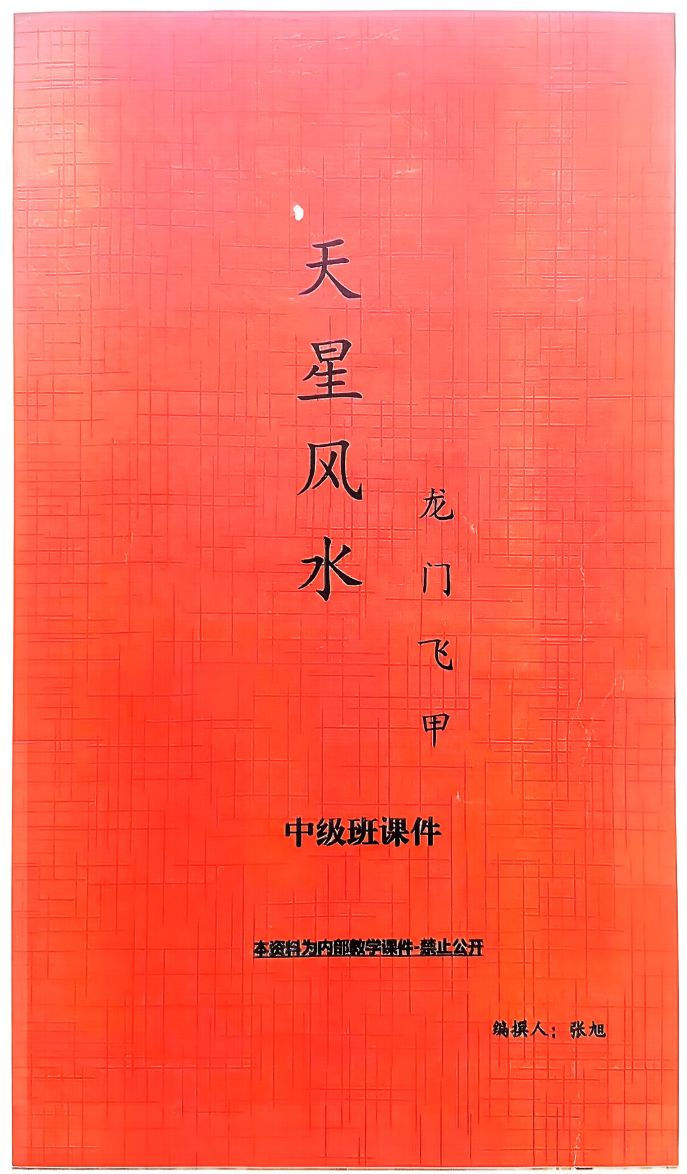 天星风水
龙门飞甲
中级班课件
本资料为内部教学课件-禁止公开
编撰人：张旭